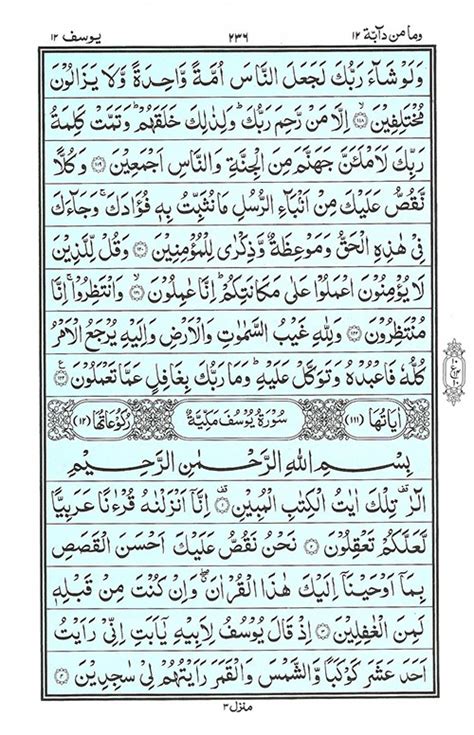 وما من دآبة ١٢ ٢٣٦ يوسف ١٢
وَلَوْ شَآءَ رَبُّكَ لَجَعَلَ النَّاسَ اُمَّةً وَّاحِدَةً وَّلَا يَزَالُوْنَ
مُخْتَلِفِيْنَ ۝١١٨ اِلَّا مَنْ رَّحِمَ رَبُّكَ ؕ وَلِذٰلِكَ خَلَقَهُمْ ؕ وَتَمَّتْ كَلِمَةُ
رَبِّكَ لَاَمْلَئَنَّ جَهَنَّمَ مِنَ الْجِنَّةِ وَالنَّاسِ اَجْمَعِيْنَ ۝١١٩ وَكُلًّا
نَّقُصُّ عَلَيْكَ مِنْ اَنْۢبَآءِ الرُّسُلِ مَا نُثَبِّتُ بِهٖ فُؤَادَكَ ۚ وَجَآءَكَ
فِيْ هٰذِهِ الْحَقُّ وَمَوْعِظَةٌ وَّذِكْرٰى لِلْمُؤْمِنِيْنَ ۝١٢٠ وَقُلْ لِّلَّذِيْنَ
لَا يُؤْمِنُوْنَ اعْمَلُوْا عَلٰى مَكَانَتِكُمْ ؕ اِنَّا عٰمِلُوْنَ ۝١٢١ وَانْتَظِرُوْا ۚ اِنَّا
مُنْتَظِرُوْنَ ۝١٢٢ وَلِلّٰهِ غَيْبُ السَّمٰوٰتِ وَالْاَرْضِ وَاِلَيْهِ يُرْجَعُ الْاَمْرُ
كُلُّهٗ فَاعْبُدْهُ وَتَوَكَّلْ عَلَيْهِ ؕ وَمَا رَبُّكَ بِغَافِلٍ عَمَّا تَعْمَلُوْنَ ۝١٢٣
اٰيَاتُهَا (١١١) سُوْرَةُ يُوْسُفَ مَكِّيَّةٌ رُكُوْعَاتُهَا (١٢)
بِسْمِ اللّٰهِ الرَّحْمٰنِ الرَّحِيْمِ
الٓرٰ ۟ تِلْكَ اٰيٰتُ الْكِتٰبِ الْمُبِيْنِ ۝١ اِنَّآ اَنْزَلْنٰهُ قُرْءٰنًا عَرَبِيًّا
لَّعَلَّكُمْ تَعْقِلُوْنَ ۝٢ نَحْنُ نَقُصُّ عَلَيْكَ اَحْسَنَ الْقَصَصِ
بِمَآ اَوْحَيْنَآ اِلَيْكَ هٰذَا الْقُرْاٰنَ ۖ وَاِنْ كُنْتَ مِنْ قَبْلِهٖ
لَمِنَ الْغٰفِلِيْنَ ۝٣ اِذْ قَالَ يُوْسُفُ لِاَبِيْهِ يٰٓاَبَتِ اِنِّيْ رَاَيْتُ
اَحَدَ عَشَرَ كَوْكَبًا وَّالشَّمْسَ وَالْقَمَرَ رَاَيْتُهُمْ لِيْ سٰجِدِيْنَ ۝٤
منزل ٣